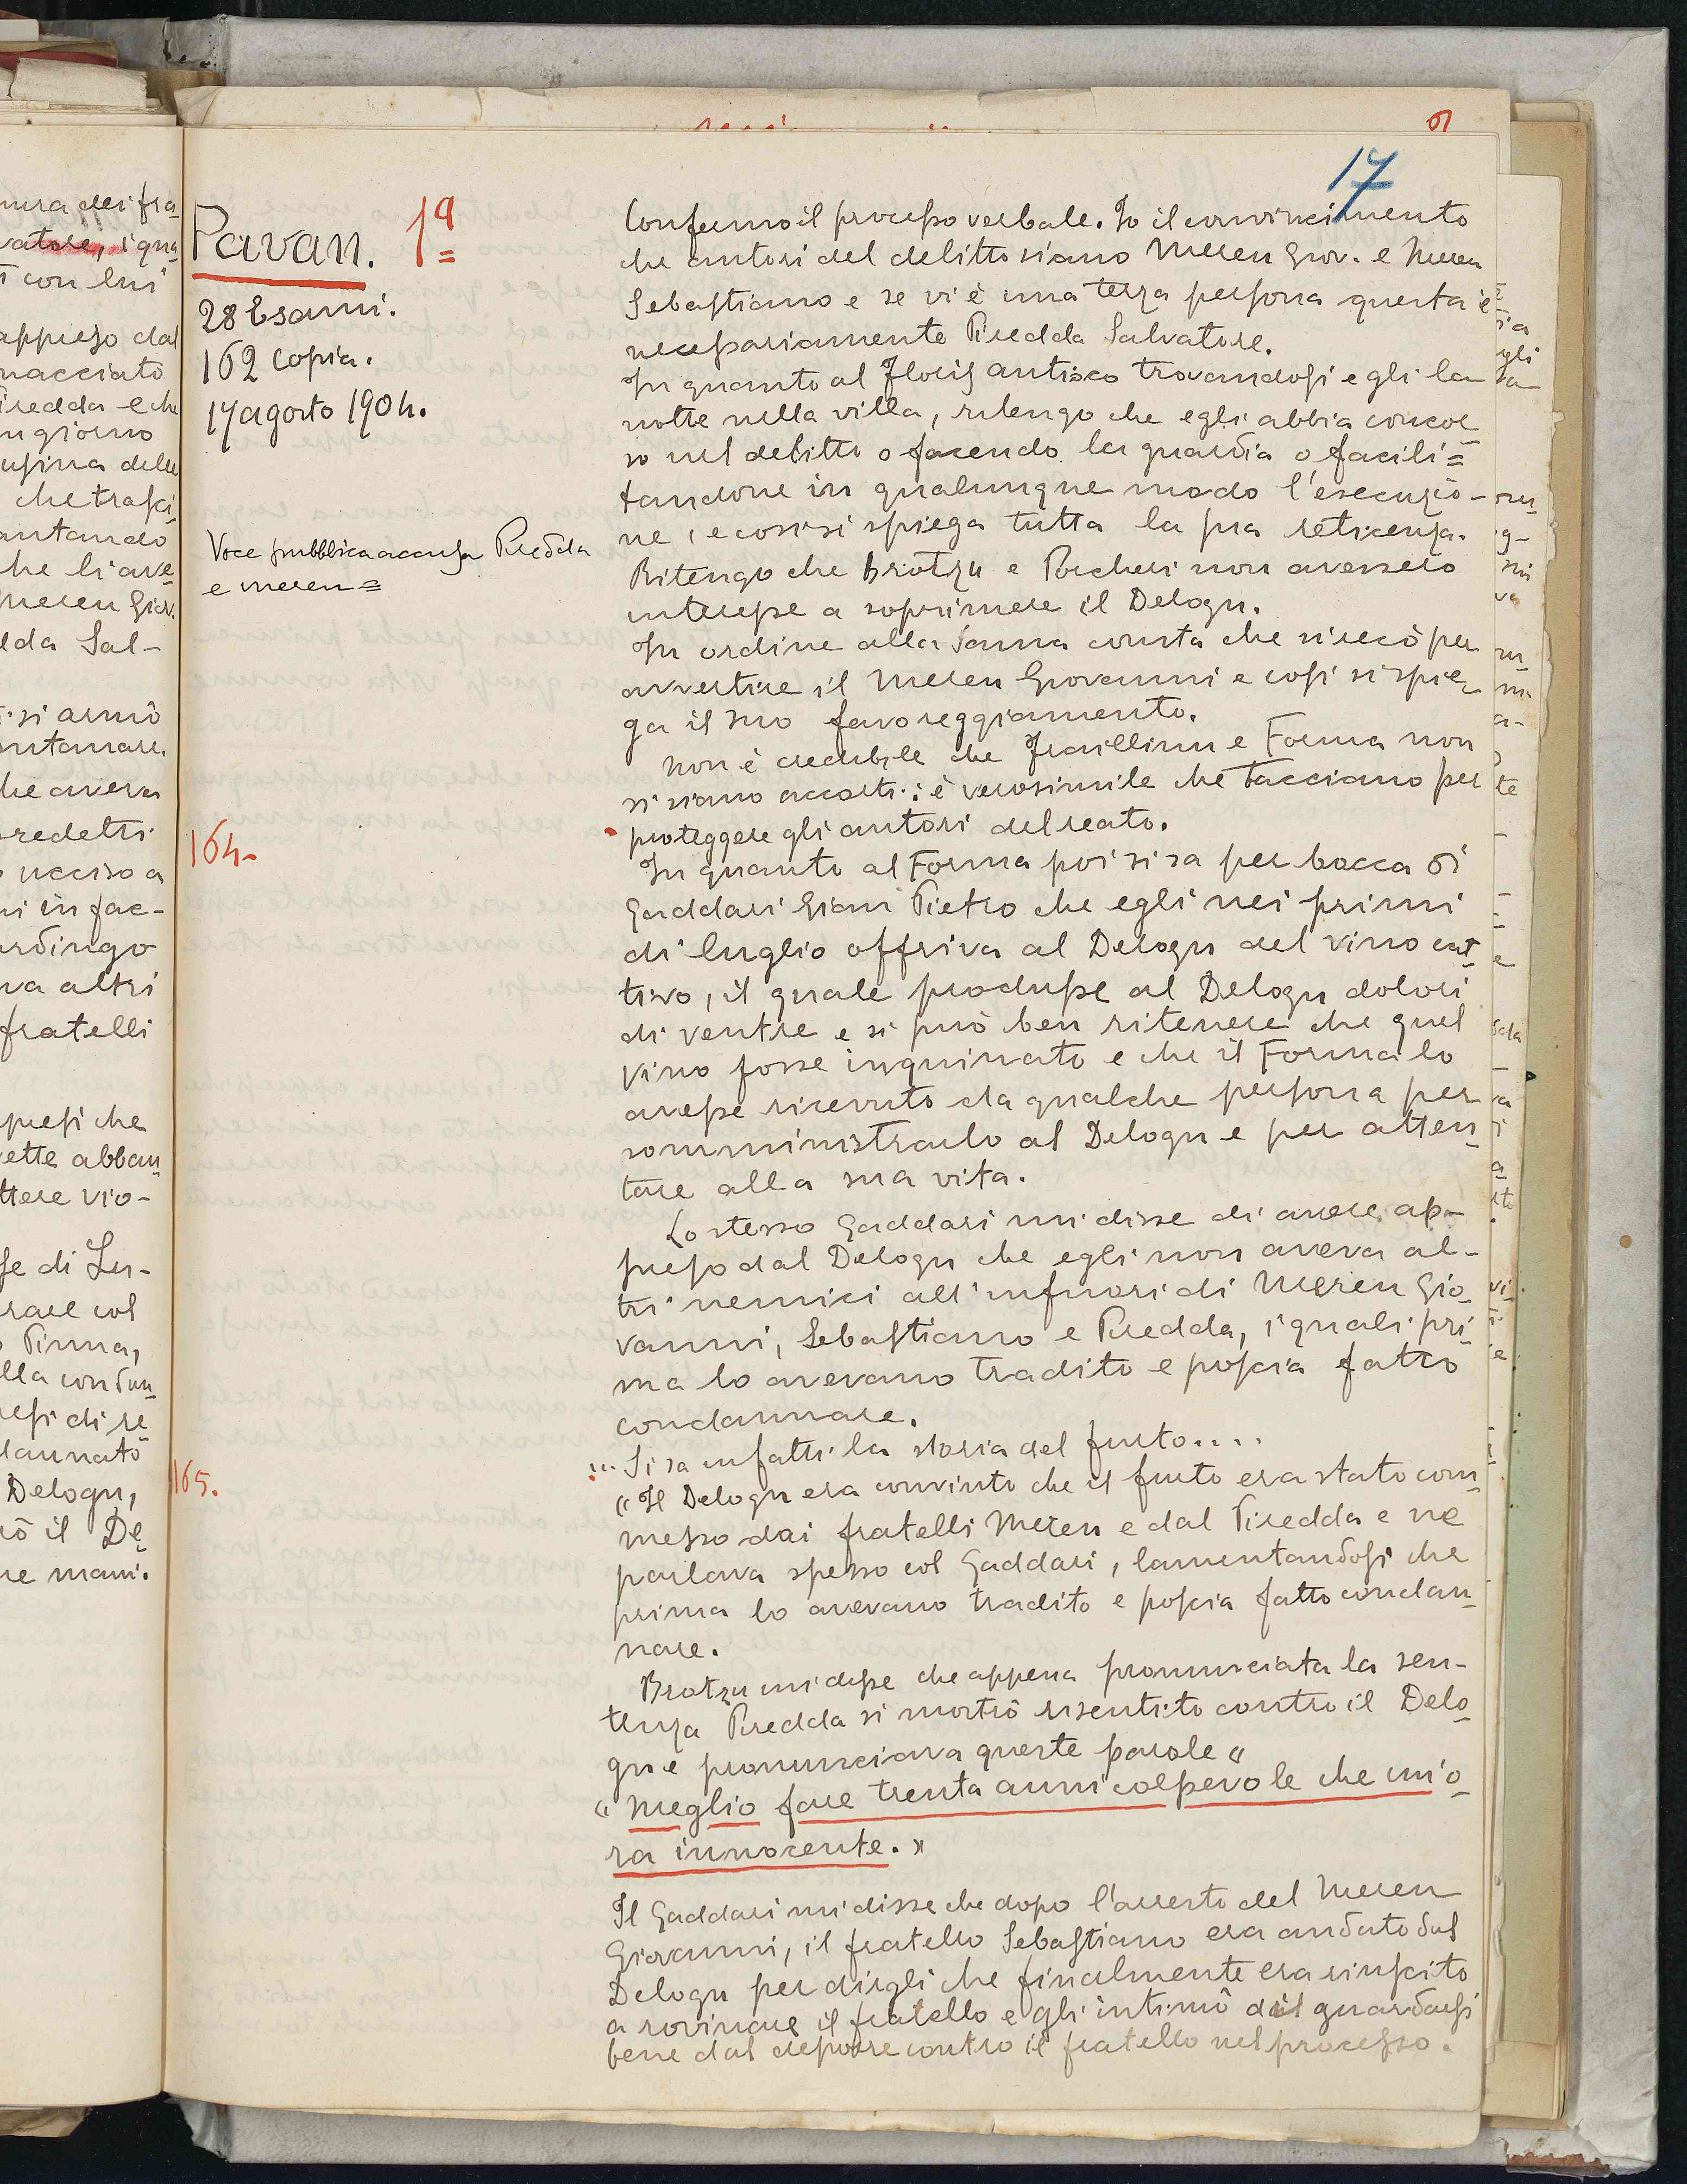 17
Pavan. 1ª
28 Esami.
162 copia.
17 agosto 1904.
Voce pubblica accusa Piredda
e Mereu =
164-
165.
Confermo il processo verbale. Io il convincimento
che autori del delitto siano Mereu Giov. e Mereu
Sebastiano e se vi è una terza persona questa è
necessariamente Piredda Salvatore.
In quanto al Floris Antioco trovandosi egli la
notte nella villa, ritengo che egli abbia concor
so nel delitto o facendo la guardia o facili=
tandone in qualunque modo l'esecuzio-
ne, e così si spiega tutta la sua reticenza.
Ritengo che Brotzu e Porcheri non avessero
interesse a soprimere il Delogu.
In ordine alla Sanna consta che si recò per
avvertire il Mereu Giovanni e così si spie-
ga il suo favoreggiamento.
Non è credibile che Fraillinu e Forma non
si siano accorti: è verosimile che tacciano per
proteggere gli autori del reato.
In quanto al Forma poi si sa per bocca di
Gaddari Gian Pietro che egli nei primi
di luglio offriva al Delogu del vino cat-
tivo, il quale produsse al Delogu dolori
di ventre e si può ben ritenere che quel
vino fosse inquinato e che il Forma lo
avesse ricevuto da qualche persona per
somministrarlo al Delogu e per atten-
tare alla sua vita.
Lo stesso Gaddari mi disse di avere ap-
preso dal Delogu che egli non aveva al-
tri nemici all'infuori di Mereu Gio-
vanni, Sebastiano e Piredda, i quali pri-
ma lo avevano tradito e poscia fatto
condannare.
... Si sa infatti la storia del furto....
"Il Delogu era convinto che il furto era stato com-
messo dai fratelli Mereu e dal Piredda e ne
parlava spesso col Gaddari, lamentandosi che
prima lo avevano tradito e poscia fatto condan-
nare.
Brotzu mi disse che appena pronunciata la sen-
tenza Piredda si mostrò risentito contro il Delo-
gu e pronunciava queste parole "
" Meglio fare trenta anni colpevole che un'o-
ra innocente. "
Il Gaddari mi disse che dopo l'arresto del Mereu
Giovanni, il fratello Sebastiano era andato dal
Delogu per dirgli che finalmente era riuscito
a rovinare il fratello e gli intimò di guardarsi
bene dal deporre contro il fratello nel processo.